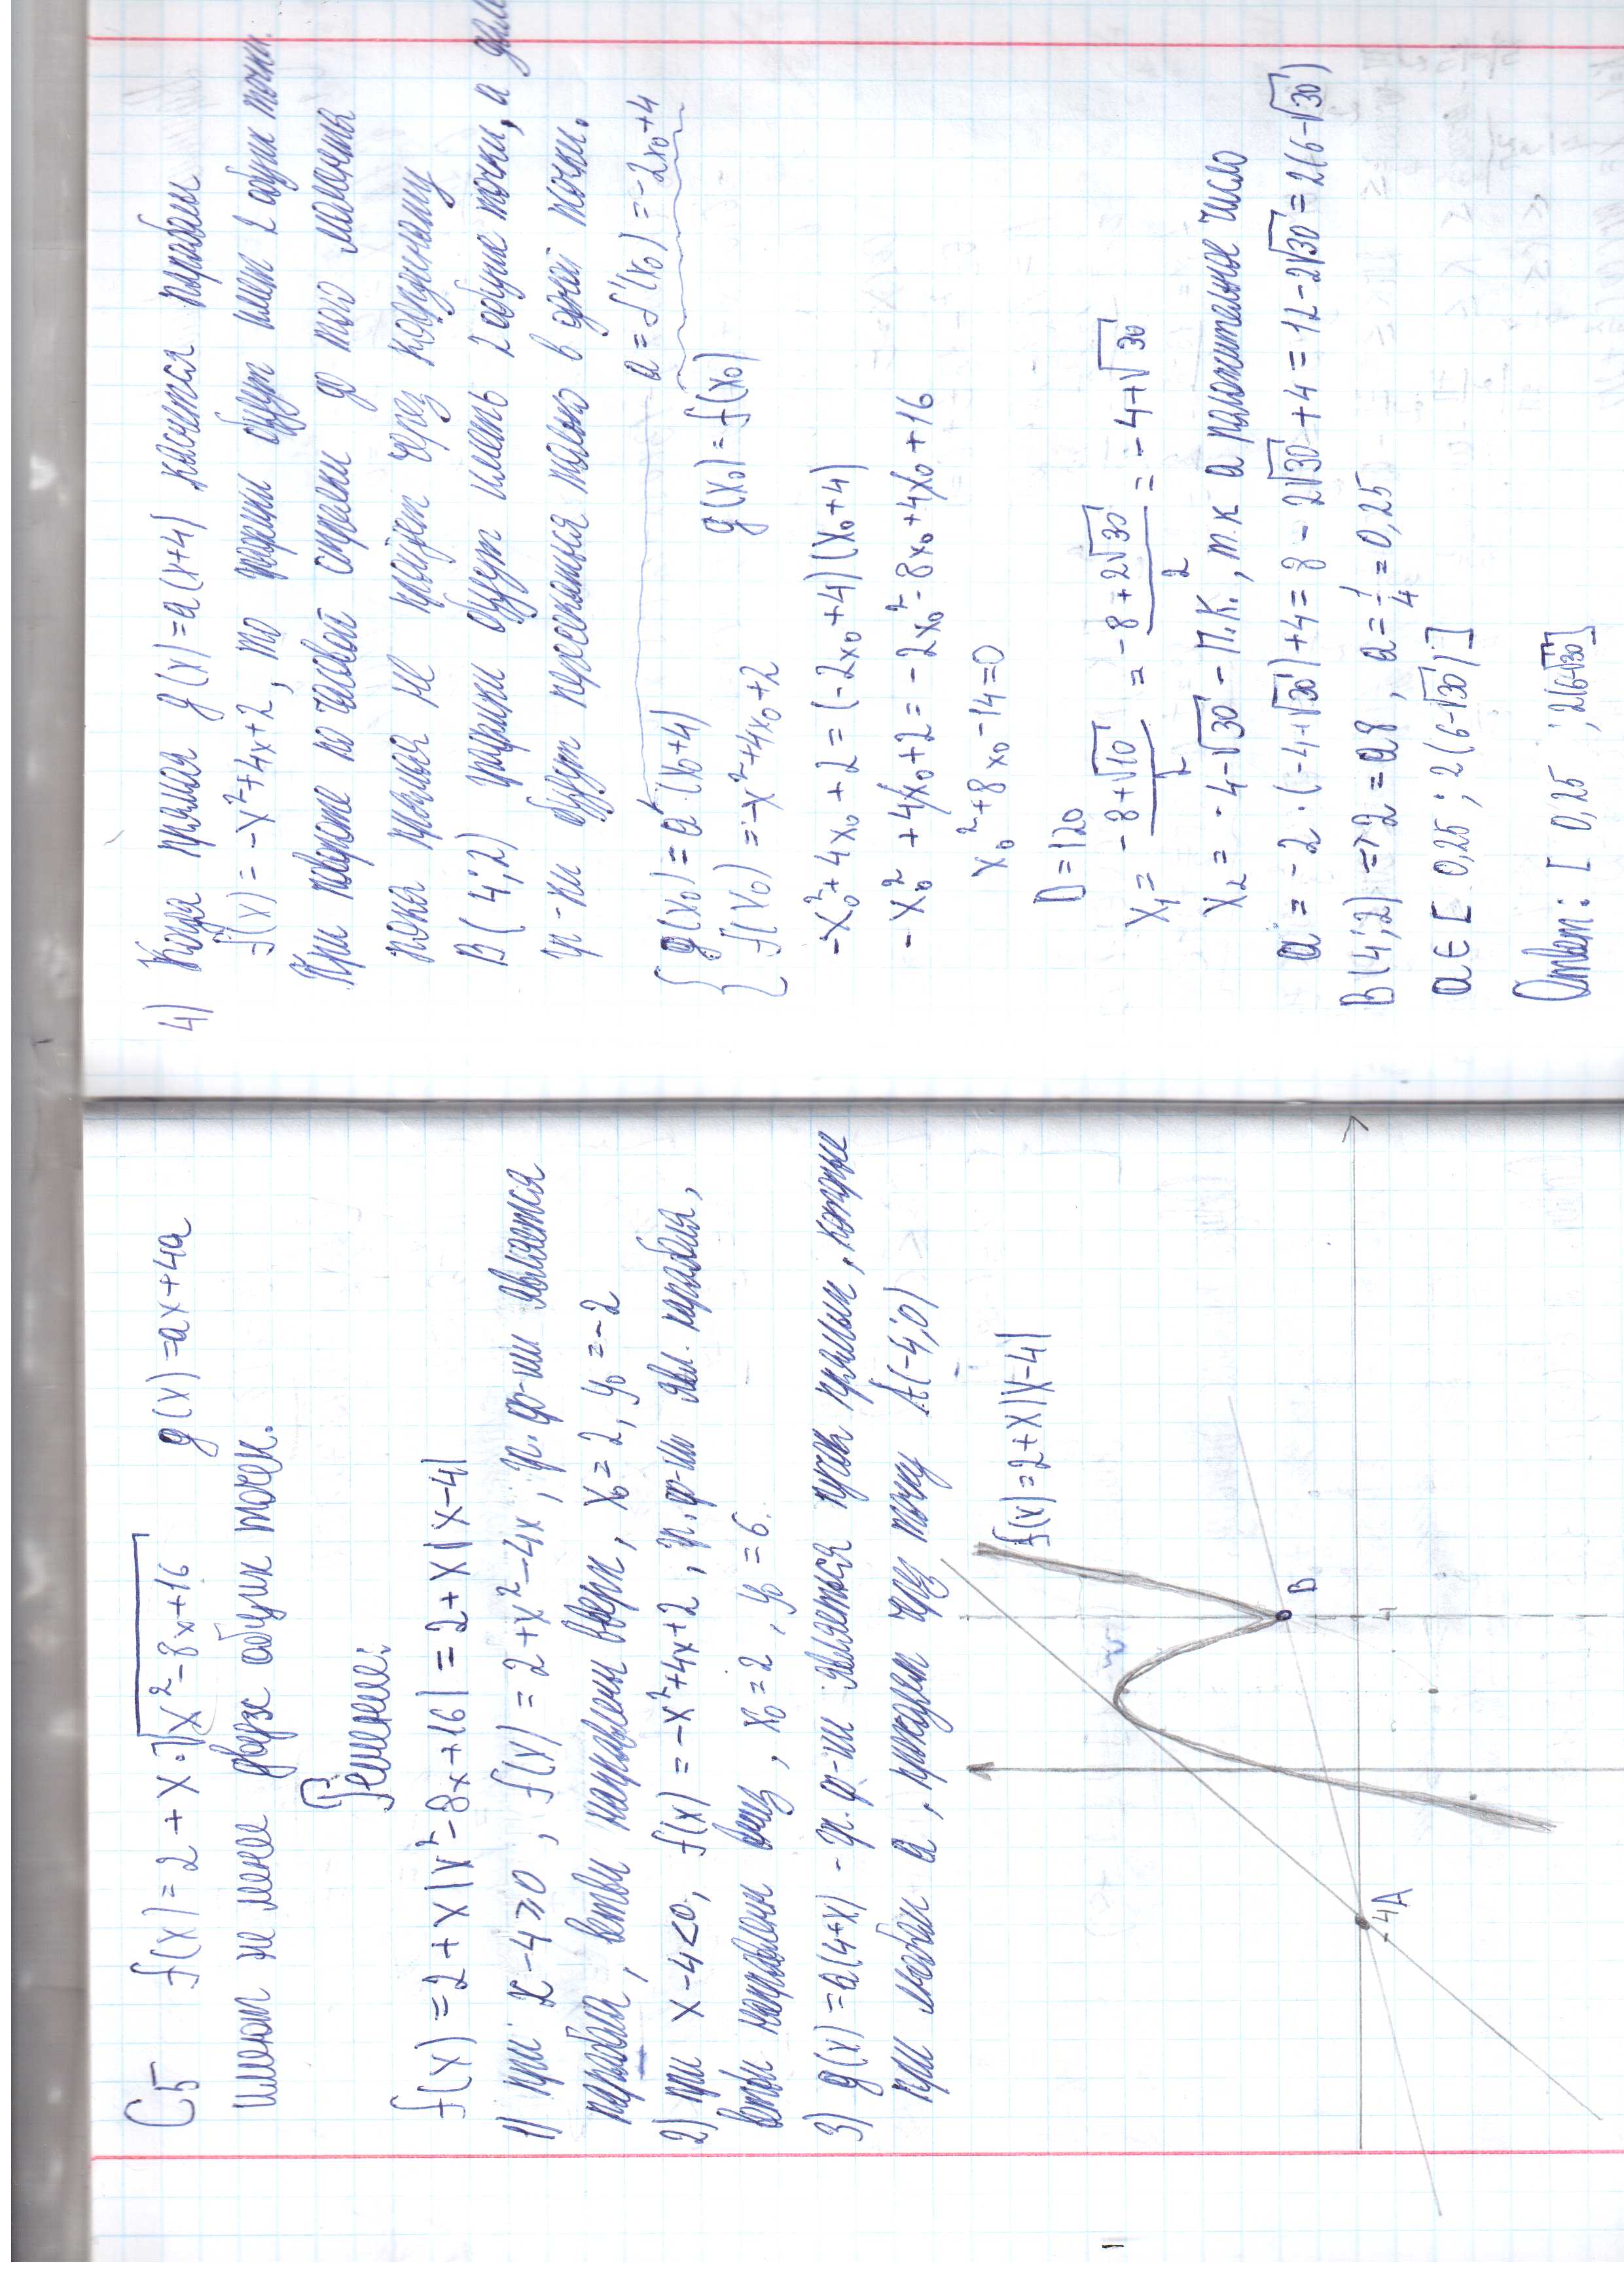 C5 f(x) = 2 + x·√x²-8x+16 g(x)=ax+4a
имеют не менее двух общих точек.
Решение:
f(x) = 2 + x|x²-8x+16| = 2+x|x-4|
1) при x-4≥0, f(x) = 2+x²-4x, гр. ф-ии является
парабола, ветви направлены вверх, x₀=2, y₀=-2
2) при x-4<0, f(x) = -x²+4x+2, гр. ф-ии явл. парабола,
ветви направлены вниз, x₀=2, y₀=6.
3) g(x)=a(4+x) - гр. ф-ии является пучок прямых, которые
при любом a, проходят через точку A(-4;0)
f(x)=2+x|x-4|
B
4
-4
A
4) Когда прямая g(x)=a(x+4) касается параболы
f(x) = -x²+4x+2, то графики будут имет 2 общие точки.
При повороте по часовой стрелки до того момента
пока прямая не пройдет через координату
B(4;2) графики будут иметь 2 общие точки, а
гр-ки будут пересекаться только в одной точки.
{ g(x₀)=a·(x₀+4) a=f'(x₀)=-2x₀+4
f(x₀)=-x²+4x₀+2 g(x₀)=f(x₀)
-x₀²+4x₀+2=(-2x₀+4)(x₀+4)
-x₀²+4x₀+2=-2x₀²-8x₀+4x₀+16
x₀²+8x₀-14=0
D=120
x₁= -8+√10 / 2 = -8+2√30 / 2 = -4+√30
x₂= -4-√30 - П.К., т.к a положительное число
a = -2·(-4+√30)+4=8-2√30+4=12-2√30=2(6-√30)
B(4;2) => 2=a8, a=1/4=0,25
a∈[0,25; 2(6-√30)]
Ответ: [0,25; 2(6-√30)]